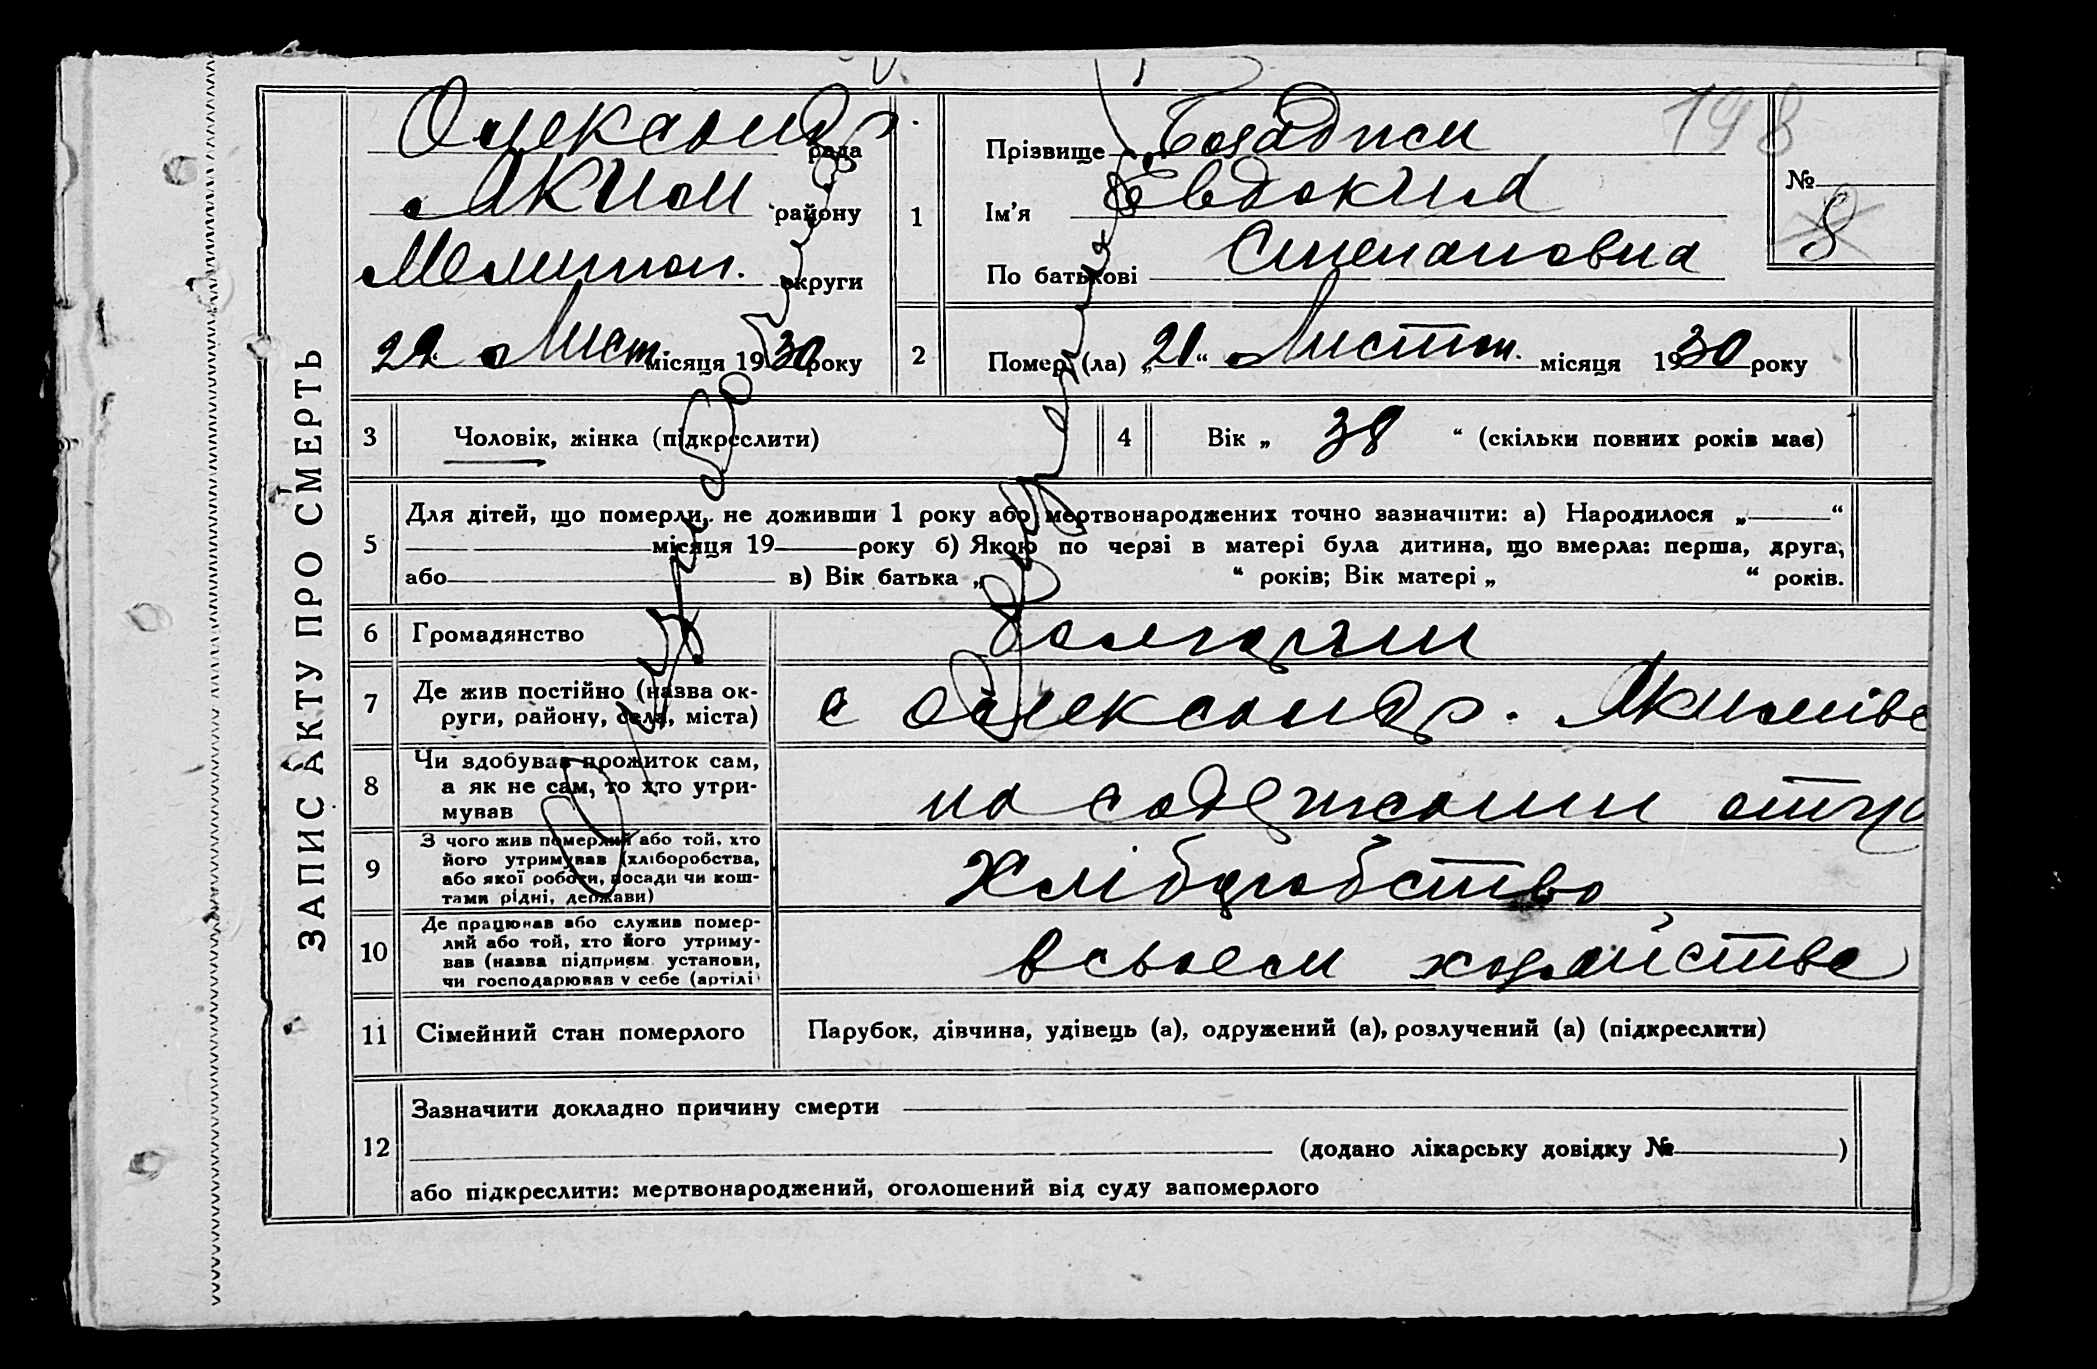 ЗАПИС АКТУ ПРО СМЕРТЬ
Олександр. рада
Яким району
Мелитоп. округи
22 Лист місяця 1930 року
1
Прізвище
Ім'я Евдокия
По батькові Степановна
198
№ 8
2
Помер (ла) „21“ Листоп. місяця 1930 року
3
Чоловік, жінка (підкреслити)
4
Вік „ 38 “ (скільки повних років має)
5
Для дітей, що померли, не доживши 1 року або мертвонароджених точно зазначити: а) Народилося „ “
місяця 19 року б) Якою по черзі в матері була дитина, що вмерла: перша, друга,
або в) Вік батька „ “ років; Вік матері „ “ років.
6
Громадянство
болгарин
7
Де жив постійно (назва ок-
руги, району, села, міста)
с Олександр. Якимівс
8
Чи здобував прожиток сам,
а як не сам, то хто утри-
мував
на содержании
9
З чого жив померлий або той, хто
його утримував (хліборобства,
або якої роботи, посади чи кош-
тами рідні, держави)
Хліборобство
10
Де працював або служив помер-
лий або той, хто його утриму-
вав (назва підприєм. установи,
чи господарював у себе (артілі)
в своем хозяйстве
11
Сімейний стан померлого
Парубок, дівчина, удівець (а), одружений (а), розлучений (а) (підкреслити)
12
Зазначити докладно причину смерти
(додано лікарську довідку № )
або підкреслити: мертвонароджений, оголошений від суду запомерлого